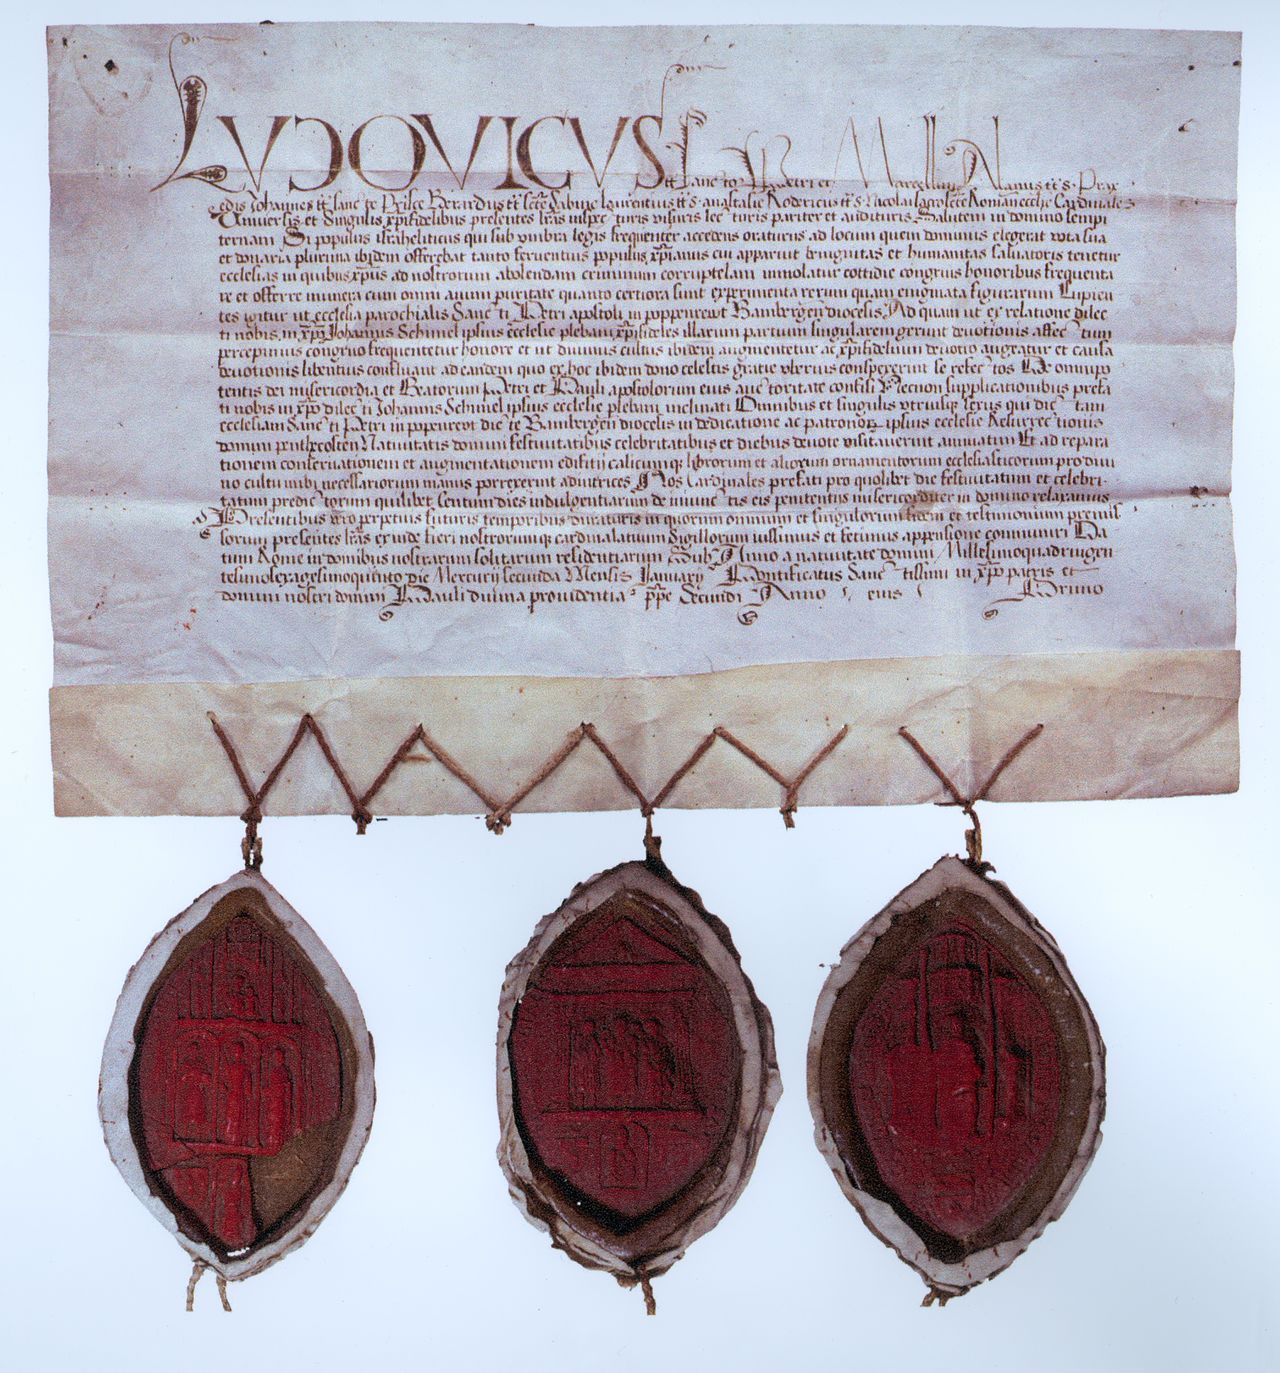 LUDOVICUS
tt Sancto
edis Johannes tt Sancte Prisce Berardus tt Sabine Laurentius tt s. anastasie Rodericus tt s. Nicolai sacrosce Romane ecclesie Cardinales
Universis et Singulis xpifidelibus presentes lras inspecturis visuris lecturis pariter et audituris Salutem in domino sempi
ternam Si populus israheliticus qui sub umbra legis frequenter accedens oraturus ad locum quem dominus elegerat vota sua
et donaria plurima ibidem offerebat tanto ferventius populus xpianus cui apparuit benignitas et humanitas salvatoris tenetur
ecclesias in quibus xpus ad nostrorum abolendam criminum corruptelam immolatur cottidie congruis honoribus frequenta
re et offerre munera cum omni animi puritate quanto certiora sunt experimenta rerum quam enigmata figurarum Cupien
tes igitur ut ecclesia parochialis Sancti Petri apostoli in poppenrewt Bambergen diocesis Ad quam ut ex relatione dilec
ti nobis in xpo Johannis Schimel ipsius ecclesie plebani xpifideles illarum partium singularem gerunt devotionis affectum
percepimus congruo frequentetur honore et ut divinus cultus ibidem augmentetur ac xpifidelium devotio augeatur et causa
devotionis libentius confluant ad eandem quo ex hoc ibidem dono celestis gratie uberius conspexerint se refectos De omnipo
tentis dei misericordia et Beatorum Petri et Pauli apostolorum eius auctoritate confisi Necnon supplicationibus prefa
ti nobis in xpo dilecti Johannis Schimel ipsius ecclesie plebani inclinati Omnibus et singulis utriusque sexus qui dictam
ecclesiam Sancti Petri in popenrewt dicte Bambergen diocesis in dedicatione ac patronorum ipsius ecclesie Resurrectionis
domini penthecosten Nativitatis domini festivitatibus celebritatibus et diebus devote visitaverint annuatim Et ad repara
tionem conservationem et augmentationem edificij calicumque librorum et aliorum ornamentorum ecclesiasticorum pro divi
no cultu inibi necessariorum manus porrexerint adiutrices Nos Cardinales prefati pro quolibet die festivitatum et celebri-
tatum predictorum quilibet Centum dies indulgentiarum de iniunctis eis penitentiis misericorditer in domino relaxamus
Presentibus vero perpetuis futuris temporibus duraturis in quorum omnium et singulorum fidem et testimonium premis
sorum presentes lras exinde fieri nostrorumque cardinalatuum Sigillorum iussimus et fecimus appensione communiri Da
tum Rome in domibus nostrarum solitarum residentiarum Sub Anno a nativitate domini Millesimoquadringen
tesimosexagesimoquinto die Mercurij secunda Mensis Januarij Pontificatus Sanctissimi in xpo patris et
domini nostri domini Pauli divina providentia ppe Secundi Anno eius Primo